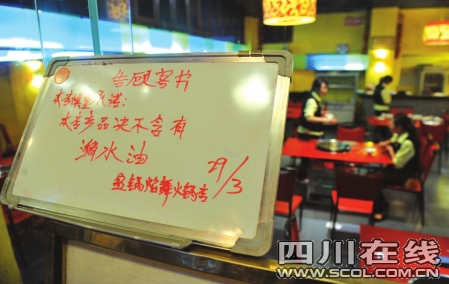 告顾客书
本店郑重承诺:
本店产品决不含有
潲水油
29/3
四川在线
WWW.SCOL.COM.CN